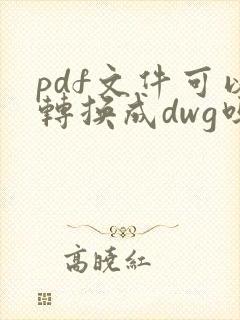 pdf文件可以
轉換成dwg嗎
高曉紅